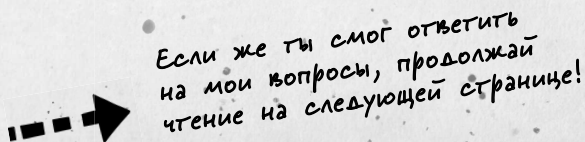 Если же ты смог ответить
на мои вопросы, продолжай
чтение на следующей странице!